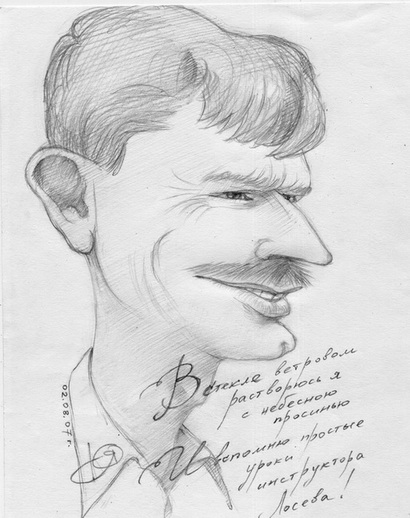 В стекле ветровом
растворюсь я
с небесною
просинью
И вспомню простые
уроки
инструктора
Лосева!
02.08.07 г.